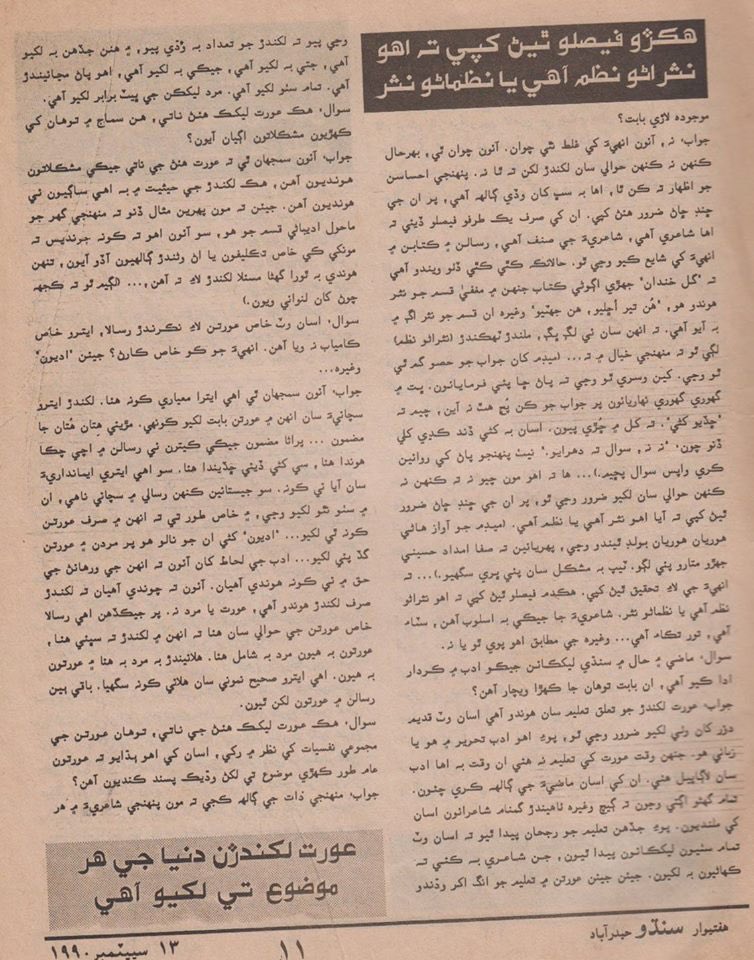 هڪڙو فيصلو ٿيڻ کپي تہ اهو
نثر اڻو نظم آهي يا نظماڻو نثر
موجوده لاڙي بابت؟
جواب، نہ، آئون انهيءَ کي غلط نٿي چوان. آئون چوان ٿي، بهرحال
ڪنهن نہ ڪنهن حوالي سان لکندڙ لکن تہ ٿا نہ. پنهنجي احساسن
جو اظهار تہ ڪن ٿا، اها بہ سڀ کان وڏي ڳالهہ آهي، پر ان جي
ڇنڊ ڇاڻ ضرور هئڻ کپي. ان کي صرف يڪ طرفو فيصلو ڏيئي تہ
اها شاعري آهي، شاعريءَ جي صنف آهي، رسالن ۾ ڪتابن ۾
انهيءَ کي شايع ڪيو وڃي ٿو. حالانڪہ ڪٿي ڪٿي ڏٺو ويندو آهي
تہ "گل خندان" جهڙي اڳوڻي ڪتاب جنهن ۾ مقفيٰ قسم جو نثر
هوندو هو، "هُن تير اُڇليو، هن جهٽيو" وغيره ان قسم جو نثر اڳ ۾
بہ آيو آهي. تہ انهن سان ئي لڳ ڀڳ، ملندڙ ٽهڪندڙ (نثراڻو نظم)
لڳي ٿو تہ منهنجي خيال ۾ تہ... (ميڊم کان جواب جو حصو گم ٿي
ٿو وڃي. ڪين وسري ٿو وڃي تہ پاڻ ڇا پئي فرمايائون. ڀت ۾
گهوري گهوري نهاريائون پر جواب جو ڪن پُڇ هٿ نہ آين، چيم تہ
"ڇڏيو کڻي". تہ کل ۾ ڇڙي پيون. اسان بہ کڻي ڏند ڪڍي کلي
ڏنو چون، "نہ نہ، سوال تہ دهرايو." نيٺ پنهنجو پاڻ کي روائين
ڪري واپس سوال پڇيم.)... ها تہ اهو مون چيو تہ تہ ڪنهن نہ
ڪنهن حوالي سان لکيو ضرور وڃي ٿو، پر ان جي ڇنڊ ڇاڻ ضرور
ٿيڻ کپي تہ آيا اهو نثر آهي يا نظم آهي. (ميڊم جو آواز هاڻي
هوريان هوريان بولڊ ٿيندو وڃي، پهريائين تہ صفا امداد حسيني
جهڙو متارو پئي لڳو. ٽيپ بہ مشڪل سان پئي ڀري سگهيو.)... تہ
انهيءَ جي لاءِ تحقيق ٿيڻ کپي. هڪدم فيصلو ٿيڻ کپي تہ اهو نثراڻو
نظم آهي يا نظماڻو نثر. شاعريءَ جا جيڪي بہ اسلوب آهن، سٽاءُ
آهي، تور تڪام آهي... وغيره جي مطابق اهو پورو ٿو يا نہ.
سوال، ماضي ۾ حال ۾ سنڌي ليککائن جيڪو ادب ۾ ڪردار
ادا ڪيو آهي، ان بابت توهان جا ڪهڙا ويچار آهن؟
جواب، عورت لکندڙ جو تعلق تعليم سان هوندو آهي اسان وٽ قديم
دؤر کان وٺي لکيو ضرور وڃي ٿو، پوءِ اهو ادب تحرير ۾ هو يا
زباني هو. جنهن وقت عورت کي تعليم نہ هئي ان وقت بہ اها ادب
سان لاڳاپيل هئي. ان کي اسان ماضيءَ جي ڳالهہ ڪري چئون.
تمام گهڻو اڳتي وڃون تہ ڳيچ وغيره ٺاهيندڙ گمنام شاعرائون اسان
کي ملنديون. پوءِ جڏهن تعليم جو رجحان پيدا ٿيو تہ اسان وٽ
تمام سٺيون ليککائون پيدا ٿيون، جن شاعري بہ ڪئي تہ
ڪهاڻيون بہ لکيون. جيئن جيئن عورتن ۾ تعليم جو انگ اکر وڌندو
وڃي پيو تہ لکندڙ جو تعداد بہ وڌي پيو، ۾ هنن جڏهن بہ لکيو
آهي، جتي بہ لکيو آهي، جيڪي بہ لکيو آهي، اهو پاڻ مڃائيندڙ
آهي. تمام سٺو لکيو آهي. مرد ليکڪن جي ڀيٽ برابر لکيو آهي.
سوال، هڪ عورت ليکڪ هئڻ ناتي، هن سماج ۾ توهان کي
ڪهڙيون مشڪلاتون اڳيان آيون؟
جواب، آئون سمجهان ٿي تہ عورت هئڻ جي ناتي جيڪي مشڪلاتون
هونديون آهن، هڪ لکندڙ جي حيثيت ۾ بہ اهي ساڳيون ئي
هونديون آهن. جيئن تہ مون پهرين مثال ڏنو تہ منهنجي گهر جو
ماحول ادبياڻي قسم جو هو، سو آئون اهو تہ ڪونہ جرنديس تہ
مونکي ڪي خاص تڪليفون يا اڻ وڻندڙ ڳالهيون آڏو آيون، تنهن
هوندي بہ ٿورا گهڻا مسئلا لکندڙ لاءِ تہ آهن،... (لڳيم ٿو تہ ڪجهہ
چوڻ کان لنوائي ويون.)
سوال، اسان وٽ خاص عورتن لاءِ نڪرندڙ رسالا، ايترو خاص
ڪامياب نہ ويا آهن. انهيءَ جو ڪو خاص ڪارڻ؟ جيئن "اديون"
وغيره...
جواب، آئون سمجهان ٿي اهي ايترا معياري ڪونہ هئا. لکندڙ ايترو
سچائيءَ سان انهن ۾ عورتن بابت لکيو ڪونهي. مڙيئي هتان هُتان جا
مضمون ... پراڻا مضمون جيڪي ڪيترن ئي رسالن ۾ اچي چڪا
هوندا هئا، سي کڻي ڏيئي ڇڏيندا هئا. سو اهي ايتري ايمانداريءَ
سان آيا ئي ڪونہ. سو جيستائين ڪنهن رسالي ۾ سچائي ناهي، ان
۾ سٺو نٿو لکيو وڃي، ۾ خاص طور تي تہ انهن ۾ صرف عورتن
ڪونہ ئي لکيو... "اديون" کڻي ان جو نالو هو پر مردن ۾ عورتن
گڏ پئي لکيو... ادب جي لحاظ کان آئون تہ انهن جي ورهاڱي جي
حق ۾ ئي ڪونہ هوندي آهيان. آئون تہ چوندي آهيان تہ لکندڙ
صرف لکندڙ هوندو آهي، عورت يا مرد نہ. پر جيڪڏهن اهي رسالا
خاص عورتن جي حوالي سان هئا تہ انهن ۾ لکندڙ تہ سڀئي هئا،
عورتون بہ هيون مرد بہ شامل هئا. هلائيندڙ بہ مرد بہ هئا ۾ عورتون
بہ هيون. اهي ايترو صحيح نموني سان هلائي ڪونہ سگهيا. باقي ٻين
رسالن ۾ عورتون لکن ٿيون.
سوال، هڪ عورت ليکڪ هئڻ جي ناتي، توهان عورتن جي
مجموعي نفسيات کي نظر ۾ رکي، اسان کي اهو ٻڌايو تہ عورتون
عام طور ڪهڙي موضوع تي لکڻ وڌيڪ پسند ڪنديون آهن؟
جواب، منهنجي ذات جي ڳالهہ ڪجي تہ مون پنهنجي شاعريءَ ۾ هر
عورت لکندڙن دنيا جي هر
موضوع تي لکيو آهي
هفتيوار سنڌو حيدرآباد
۱۱
۱۳ سيپٽمبر ۱۹۹۰